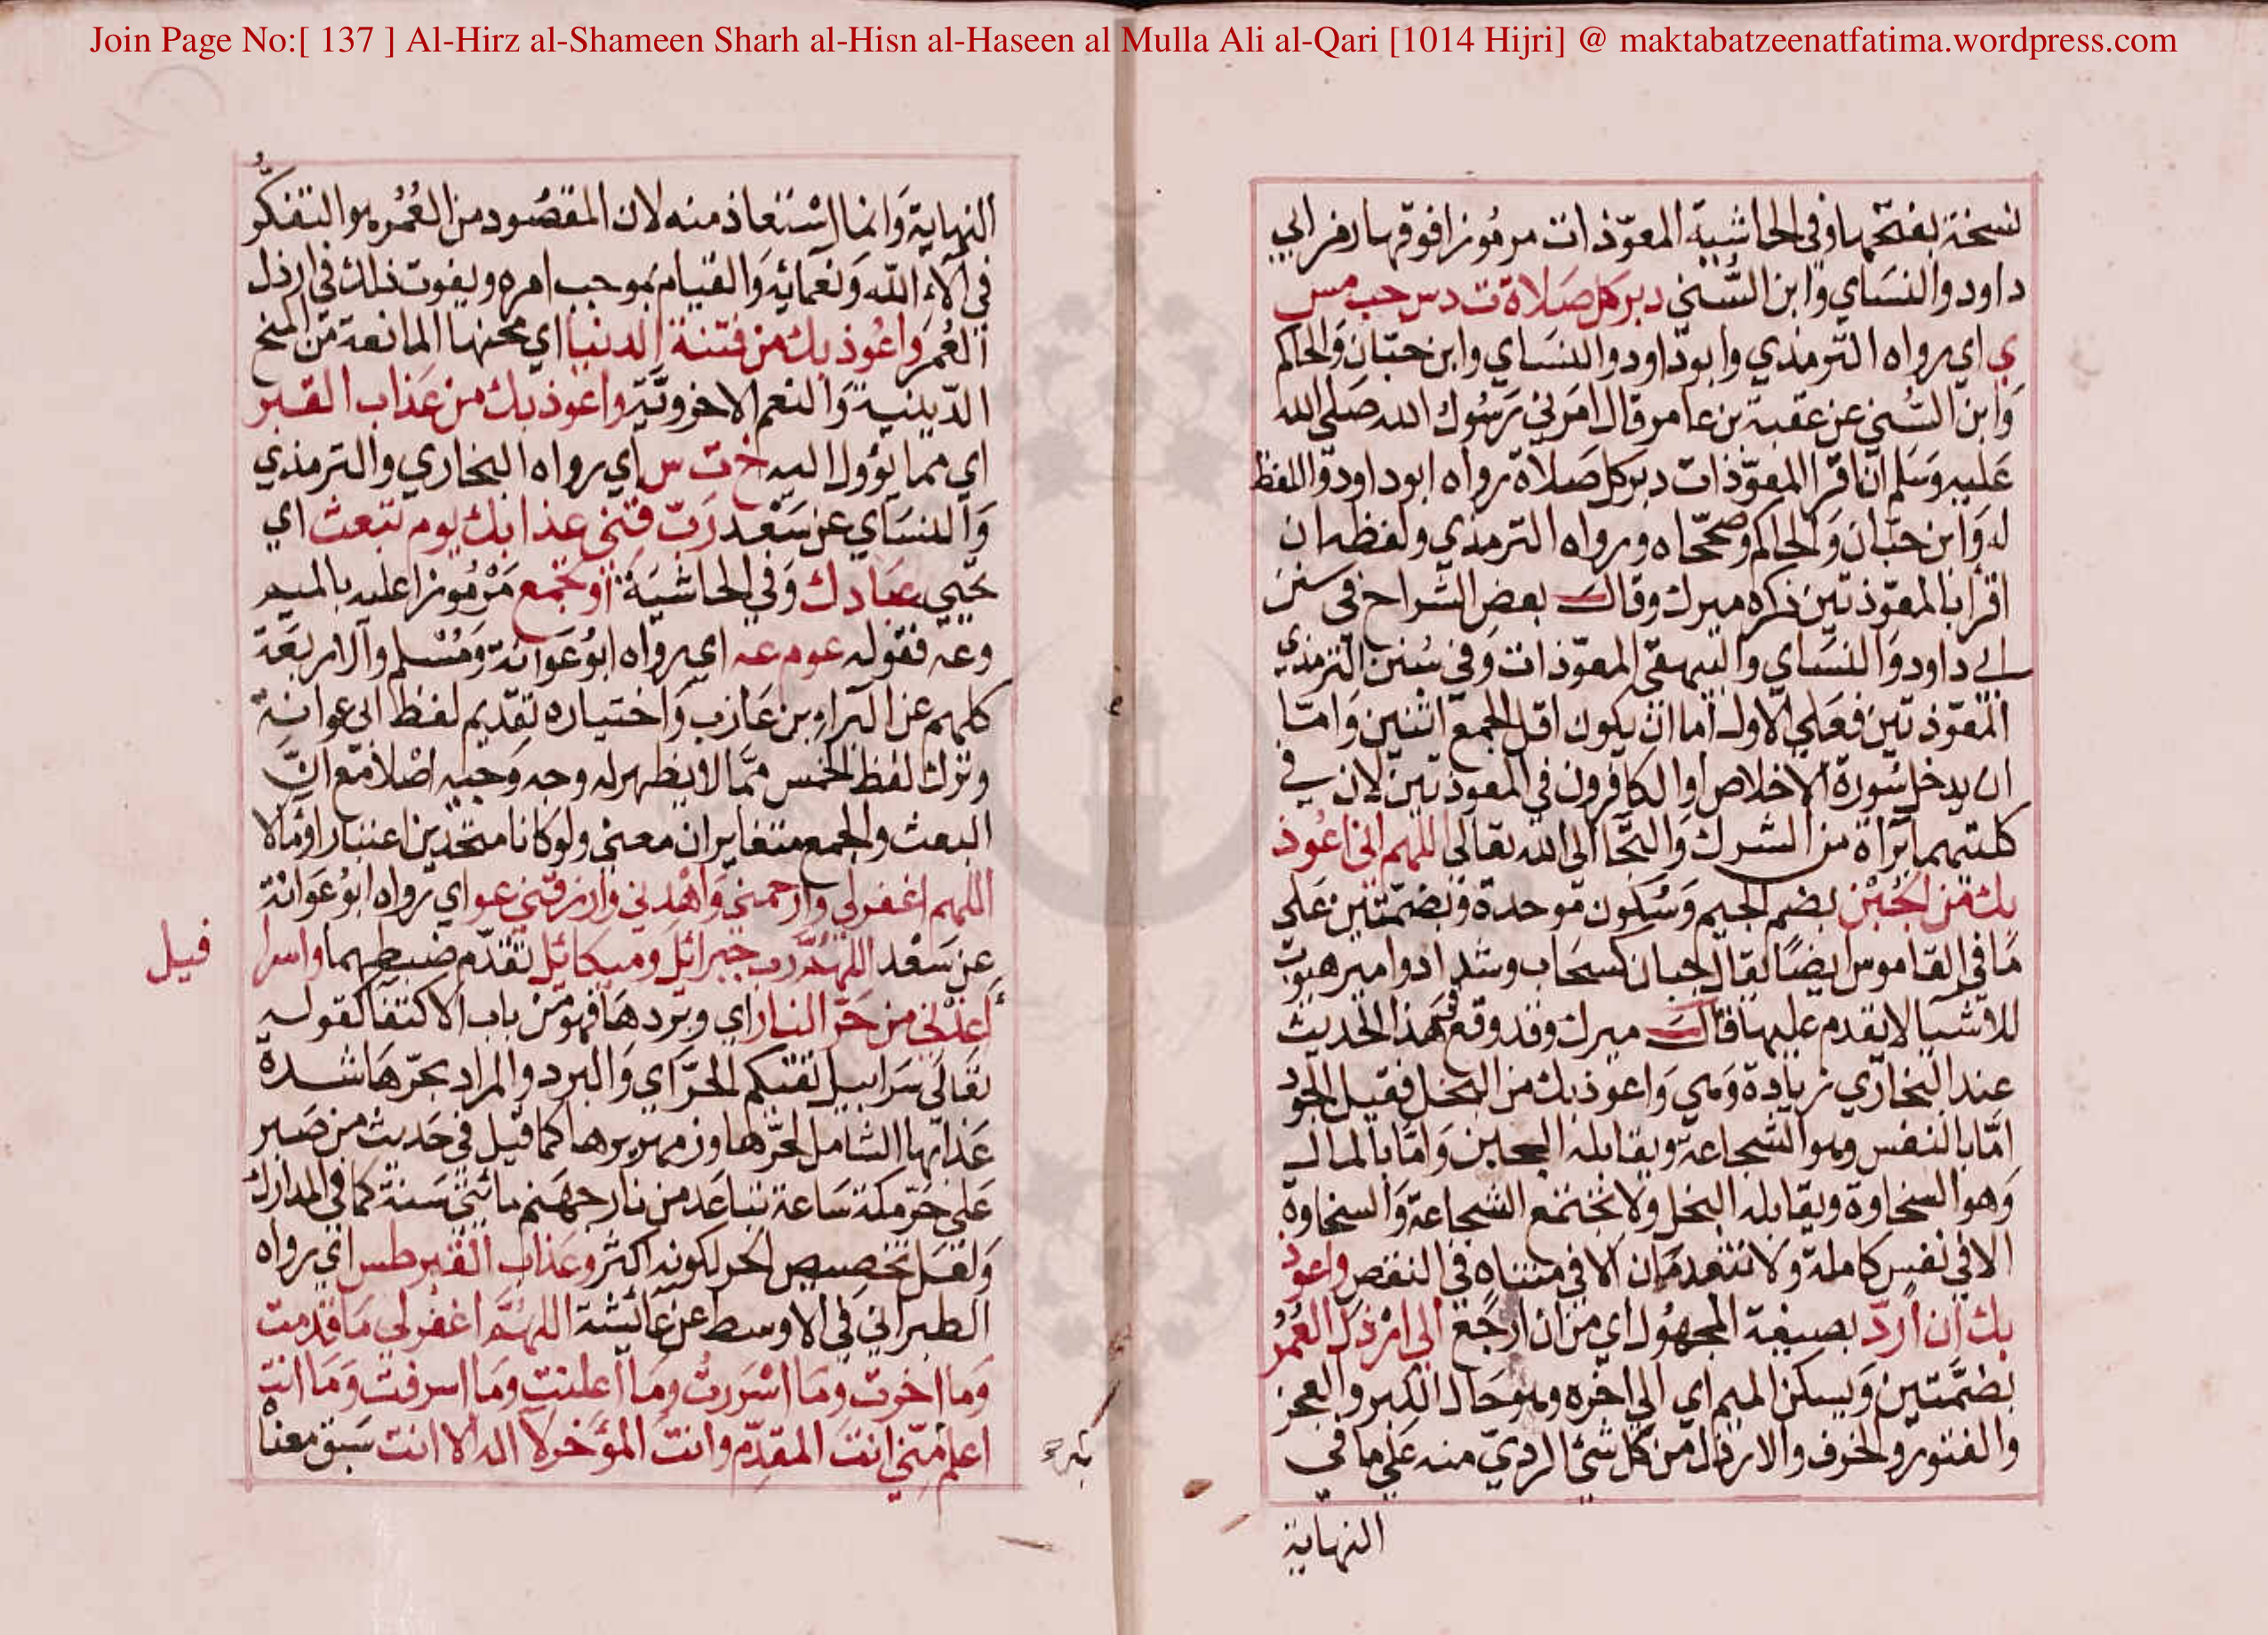 Join Page No:[ 137 ] Al-Hirz al-Shameen Sharh al-Hisn al-Haseen al Mulla Ali al-Qari [1014 Hijri] @ maktabatzeenatfatima.wordpress.com
نسخة بفتحها وفي الحاشية المعوّذات مرموزا فوقها رمز ابي
داود والنسَاي وابن السُّني دبر كل صَلاة ت د س حب مس
ي اي رواه الترمذي وابو داود والنسَاي وابن حبّان وَالحاكم
وَابن السُّني عن عقبة بن عامر قال امَرني رَسُول الله صَلى الله
عَليه وسَلم ان اقرا المعوّذات دبر كل صَلاة رواه ابو داود واللفظ
له وَابن حبّان وَالحاكم وصححَّاه ورواه الترمذي ولفظه ان
اقرا بالمعوّذتين ذكره ميرك وقال بعض الشراح في سنن
ابي داود وَالنسَاي والبيهقي المعوّذات وَفي سُنن الترمذي
المعوّذتين فعَلي الاول اما ان يكون اقل الجمع اثنين وَامّا
ان يدخل سُورة الاخلاص او الكافرون في المعوذتين لان في
كلتيهما براة من الشرك وَالتجا الى الله تعالي اللهم اني اعُوذ
بك من الجُبْن بضم الجيم وَسُكون موحدة وَبضمّتين عَلى
مَا في القاموس ايضًا يقال جبان كسحَاب وشداد وامير هيوب
للاشيا لا يقدم عليها قال ميرك وقد وقع في هذا الحديث
عند البخاري زيادة وَهي وَاعوذ بك من البخل فقيل الجود
امّا بالنفس وهو الشجاعة ويقابله الجبن وَامّا بالمال
وَهو السخاوة ويقابله البخل ولا تجتمع الشجاعة وَالسخاوة
الا في نفس كاملة وَلا تنعدمَان الا في متناه في النقص واعوذ
بك ان اردّ بصيغة المجهُول اي من ان ارجَع الي ارْذل العُمُر
بضمَّتين وَيسكن الميم اي الي اخره وهو حَال الكبر والعجز
والفتور والخرف والارذل من كل شئ الرديّ منه عَلي ما في
النهاية
النهاية وَانما استعاذ منه لان المقصُود من العُمُر هو التفكّرُ
في آلاء الله وَنعمَائِه وَالقيام بموجب امره ويفوت ذلك في ارذل
العُمُر واعُوذ بك من فتنة الدنيا اي محنها المانعة من المنح
الدّينية وَالنعم الاخرويّة واعوذ بك من عَذاب القبر
اي مما يؤول اليه خ ت س اي رواه البخاري والترمذي
وَالنسَاي عن سَعْد رَبّ قِني عذابك يوم تبعث اي
تحيي عبَادك وَفي الحاشيَة او تجمع مَرْمُوزا عليه بالميم
وعه فقوله عو م عه اي رواه ابُو عَوانة وَمُسْلم وَالاربَعَة
كلهم عن البرَاء بن عَازب وَاختياره تقديم لفظ ابي عوانة
وترك لفظ الخمس ممَّا لا يظهر له وجه وَجيه اصْلا مَع انَّ
البعث والجمع متغايران معني ولو كانا متحدين اعتبارا ومَالا
اللهم اغفرلي وارحمني وَاهْدني وارزقني عو اي رواه ابُو عَوَانة
عن سَعْد اللهُمَّ رب جبرائل وميكائل تقدّم ضبطهما واسرا
فيل
اعذني من حَرّ النار اي وبَردهَا فهو من باب الاكتفا كقوله
تعَالي سَرَابيل تقيكم الحرَّ اي وَالبرد والمراد بحرّهَا شدة
عَذابها الشامل لحرّها وزمهريرها كما قيل في حَديث من صَبر
عَلي حرّ مكة سَاعة تباعَد من نار جهنم مائتي سَنة كما في المدارك
وَلعَل تخصيص الحر لكونه اكثر وعَذاب القبر طس اي رواه
الطبراني في الاوسط عن عَائشة اللهُمَّ اغفرلي مَا قدمت
وَما اخرت ومَا اسْررت ومَا اعلنت ومَا اسرفت وَمَا انت
اعلم منّي انتَ المقدّم وانت المؤخر لا اله الا انت سَبق معناه